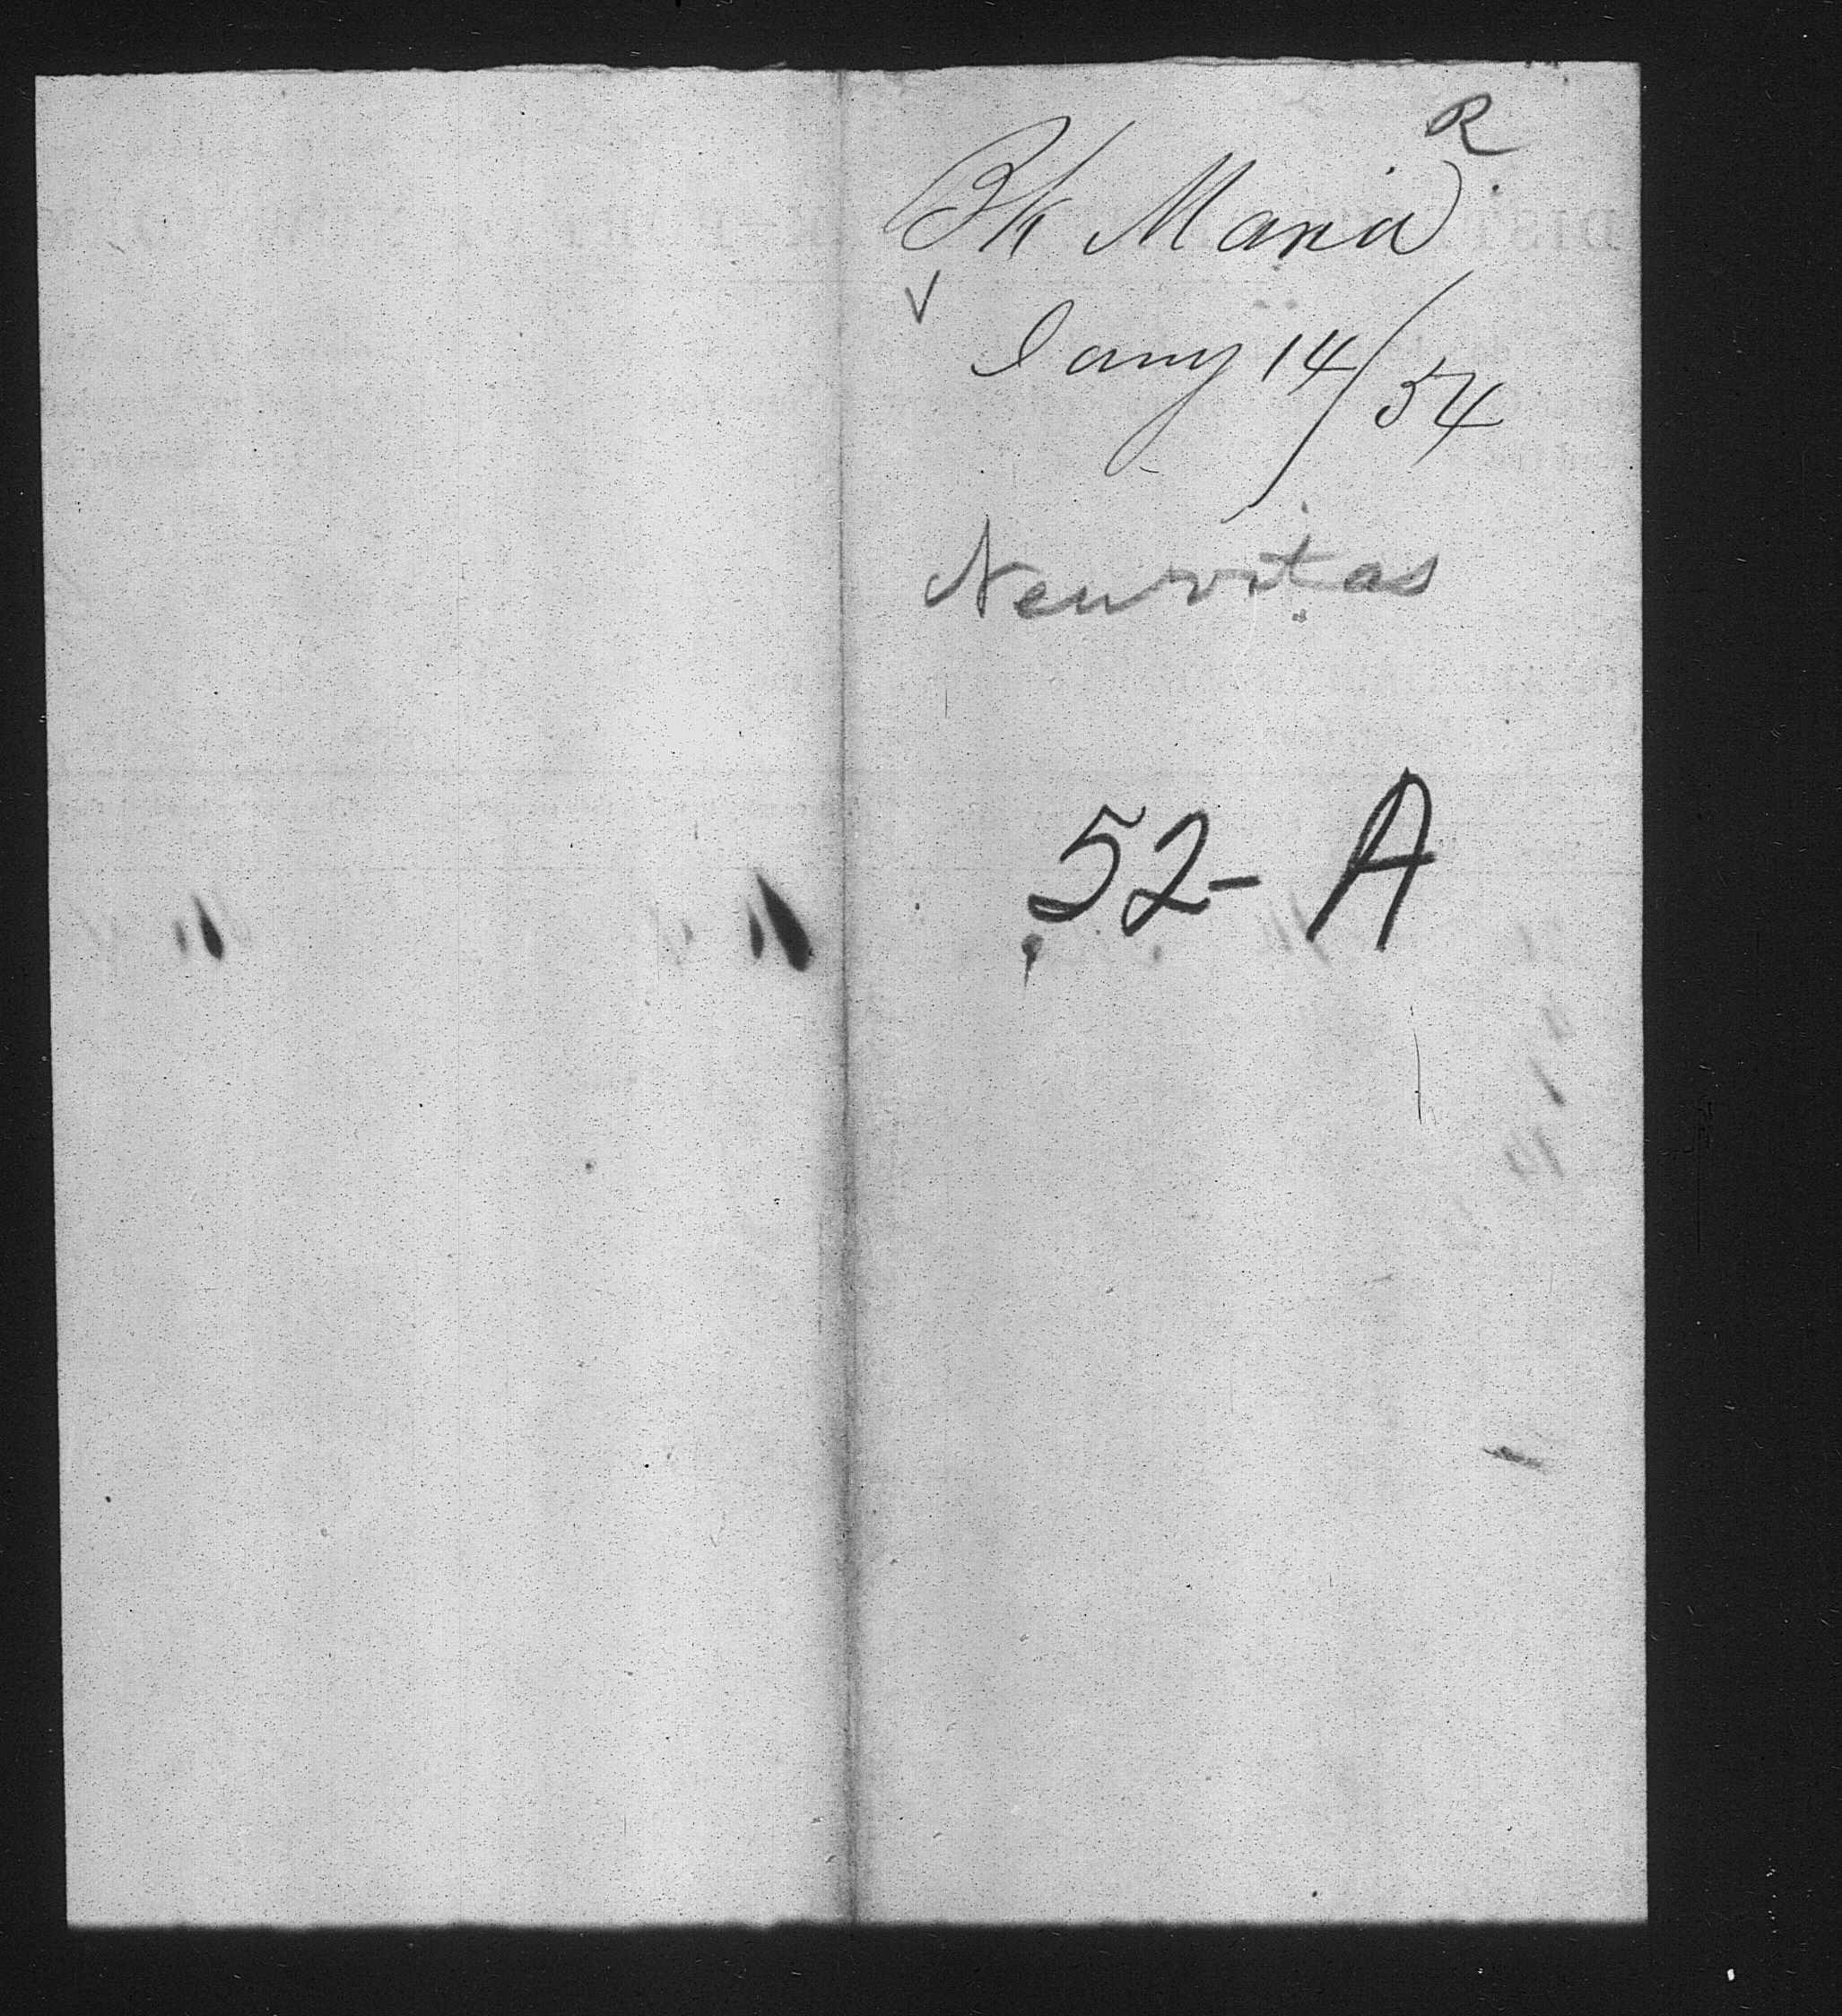 R
Bk Maria
Jany 14/54
Neuvitas
52-A